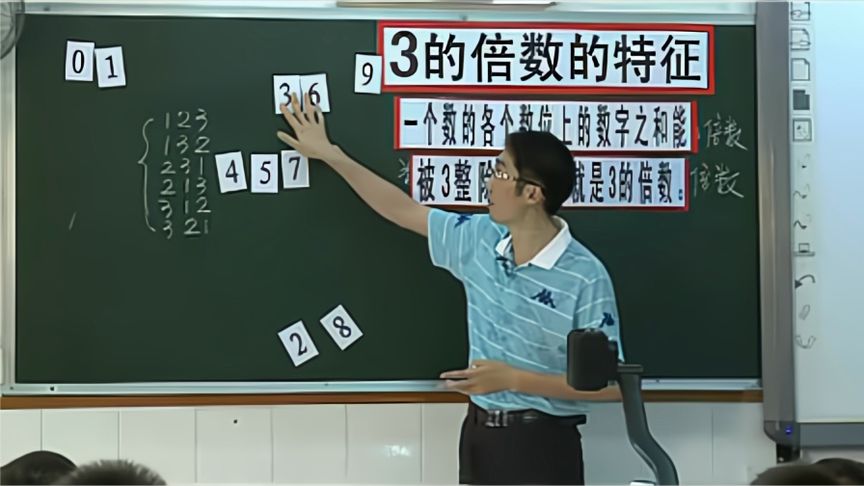 0 1
3 6
9
3的倍数的特征
一个数的各个数位上的数字之和能
倍数
被3整除
就是3的倍数。
倍数
123
132
231
213
312
321
4 5 7
2 8